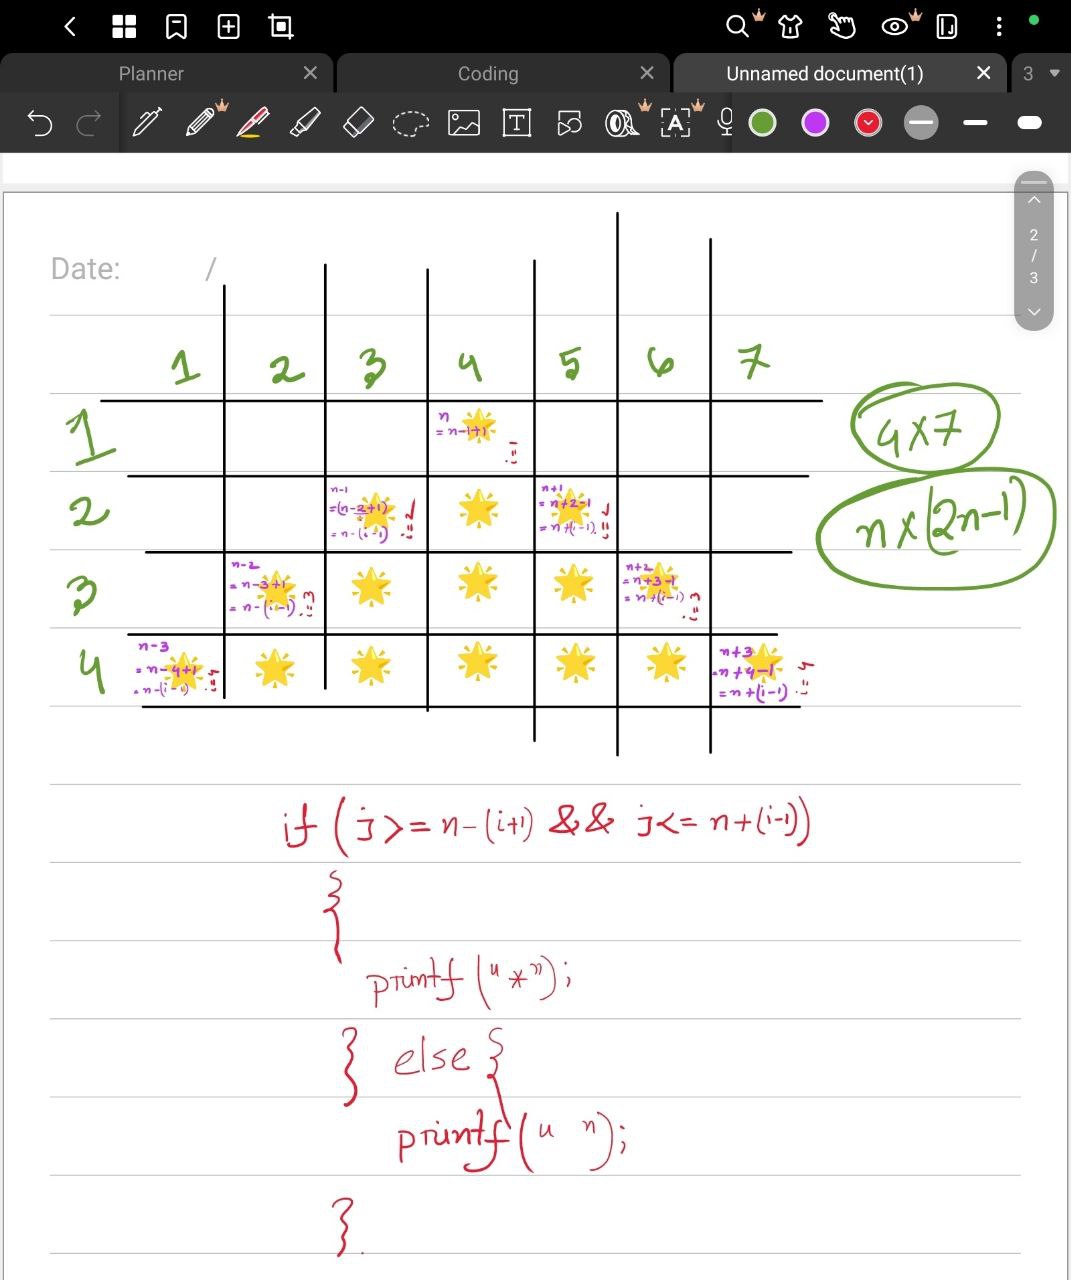 Planner
Coding
Unnamed document(1)
3
2
/
3
Date: /
1 2 3 4 5 6 7
1
n
= n-1+1
i=1
4×7
2
n-1
=(n-2+1)
= n-(i-1)
i=2
n+1
= n+2-1
= n+(i-1)
i=2
n×(2n-1)
3
n-2
= n-3+1
= n-(i-1)
i=3
n+2
= n+3-1
= n+(i-1)
i=3
4
n-3
= n-4+1
= n-(i-1)
i=4
n+3
= n+4-1
= n+(i-1)
i=4
if (j>=n-(i+1) && j<= n+(i-1))
{
printf("*");
} else {
printf(" ");
}